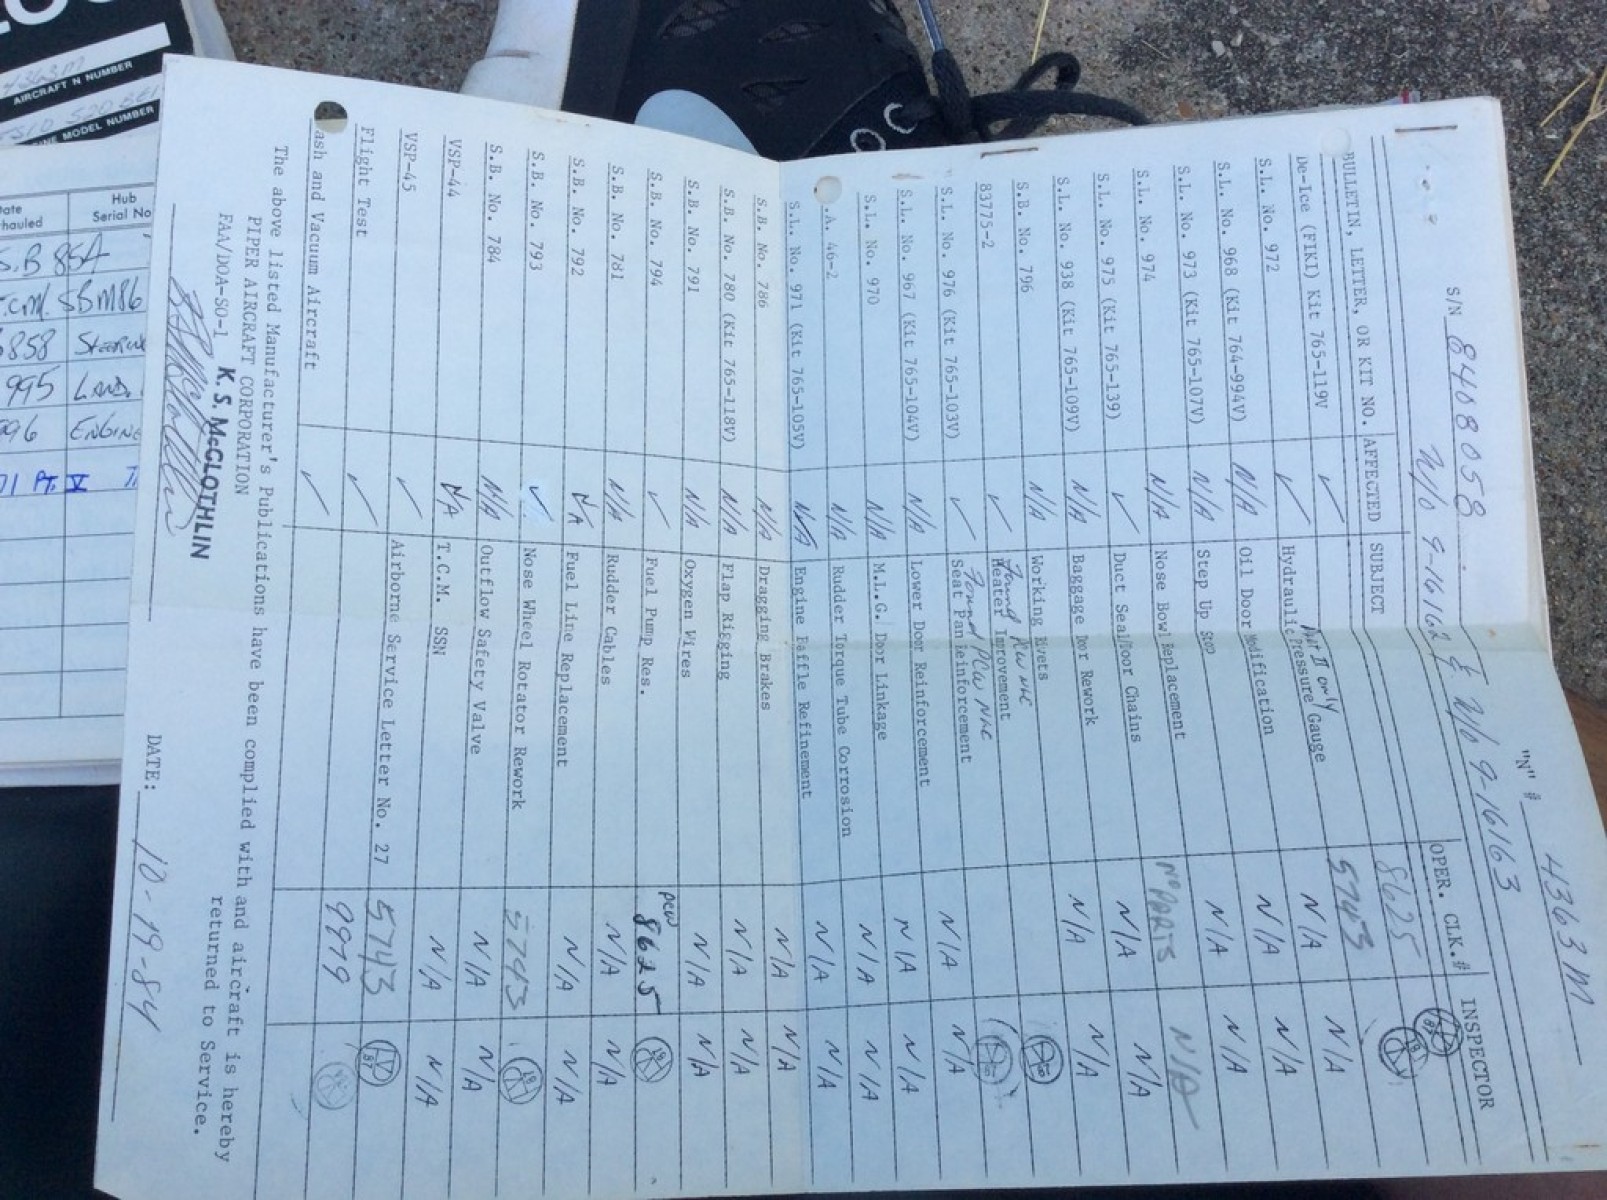 "N" # 4363M
S/N 8408058 W/o 9-16162 & W/o 9-16163
BULLETIN, LETTER, OR KIT NO. AFFECTED SUBJECT OPER. CLK.# INSPECTOR
De-Ice (FIKI) Kit 765-119V ✓ 8625
S.L. No. 972 ✓ Hydraulic Pressure Gauge Part II only 5743
S.L. No. 968 (Kit 764-994V) N/A Oil Door Modification N/A N/A
S.L. No. 973 (Kit 765-107V) N/A Step Up Stop N/A N/A
S.L. No. 974 N/A Nose Bowl Replacement N/A N/A
S.L. No. 975 (Kit 765-139) ✓ Duct Seal/Door Chains NO PARTS N/A
S.L. No. 938 (Kit 765-109V) N/A Baggage Door Rework N/A N/A
S.B. No. 796 N/A Working Rivets N/A N/A
83775-2 ✓ Heater Improvement Found PCW NHC
S.L. No. 976 (Kit 765-103V) ✓ Seat Pan Reinforcement Found PCW NHC
S.L. No. 967 (Kit 765-104V) N/A Lower Door Reinforcement N/A N/A
S.L. No. 970 N/A M.L.G. Door Linkage N/A N/A
.A. 46-2 N/A Rudder Torque Tube Corrosion N/A N/A
S.L. No. 971 (Kit 765-105V) N/A Engine Baffle Refinement N/A N/A
S.B. No. 786 N/A Dragging Brakes N/A N/A
S.B. No. 780 (Kit 765-118V) N/A Flap Rigging N/A N/A
S.B. No. 791 N/A Oxygen Wires N/A N/A
S.B. No. 794 ✓ Fuel Pump Res. PCW 8625
S.B. No. 781 N/A Rudder Cables N/A N/A
S.B. No. 792 N/A Fuel Line Replacement N/A N/A
S.B. No. 793 ✓ Nose Wheel Rotator Rework 5743
S.B. No. 784 N/A Outflow Safety Valve N/A N/A
VSP-44 N/A T.C.M. SSN N/A N/A
VSP-45 ✓ Airborne Service Letter No. 27 5743
Flight Test ✓ 9979
ash and Vacuum Aircraft ✓
The above listed Manufacturer's Publications have been complied with and aircraft is hereby
returned to Service.
PIPER AIRCRAFT CORPORATION
FAA/DOA-SO-1 K. S. McCLOTHLIN
DATE: 10-19-84
4363M
AIRCRAFT N NUMBER
MODEL NUMBER
Hub
Serial No
S.B 85A
T.C.M. SBM86
858
995 LAND.
996 ENGINE
71 Pt. V